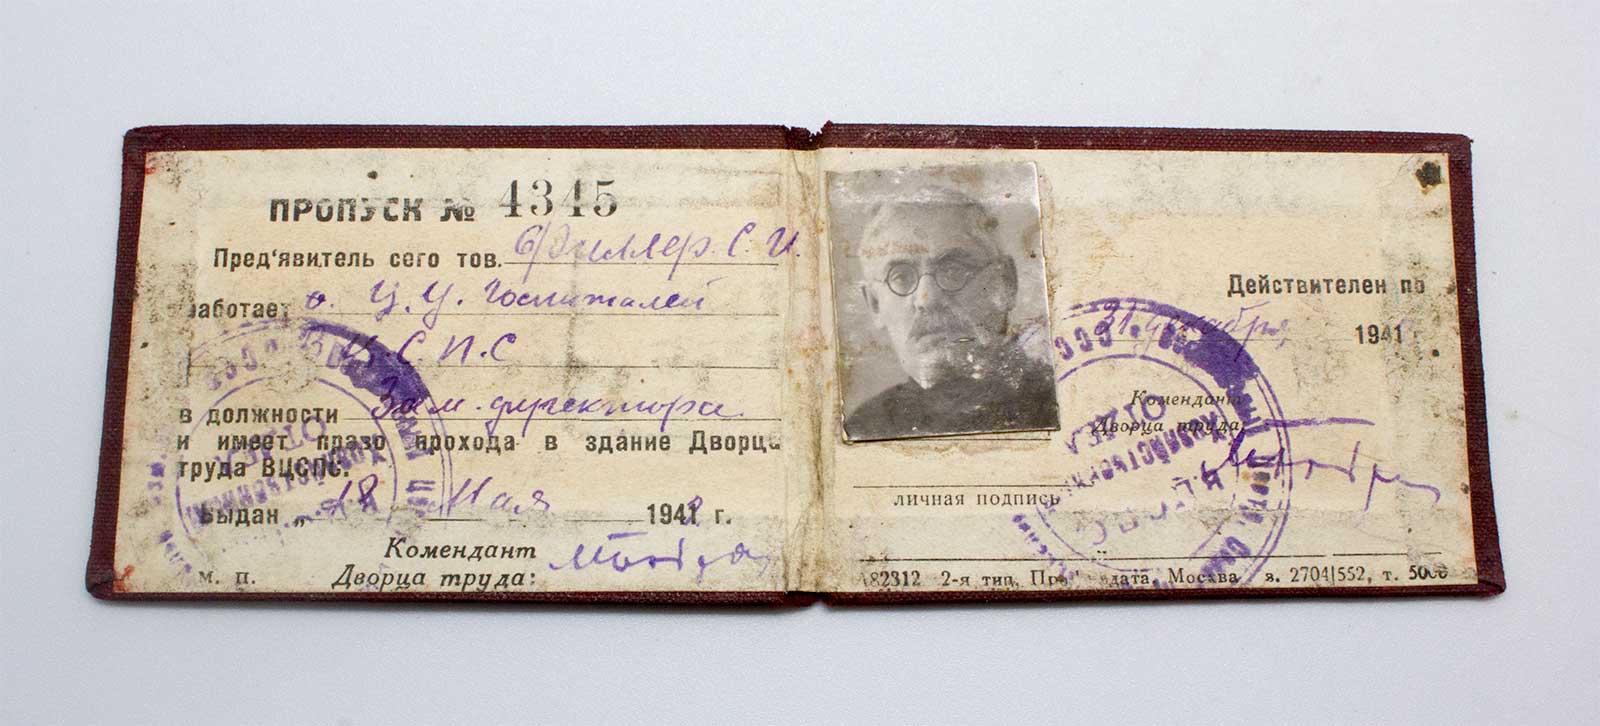 ПРОПУСК № 4345
Пред'явитель сего тов. С. И.
работает в Ц. У. Госпиталей
В.Ц.С.П.С
в должности Зам. директора
и имеет право прохода в здание Дворца
труда ВЦСПС.
Выдан „18 Мая 1942 г.
Комендант
м. п. Дворца труда:
Действителен по
31 декабря 194 г.
Комендант
Дворца труда:
личная подпись
А82312 2-я тип. Москва з. 2704|552, т. 5000